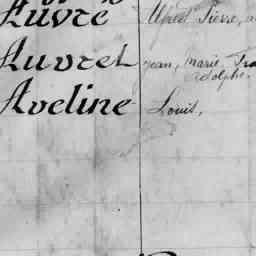 Auvré Alfred Pierre,
Auvret Jean, Marie,
Adolphe.
Aveline Louis,